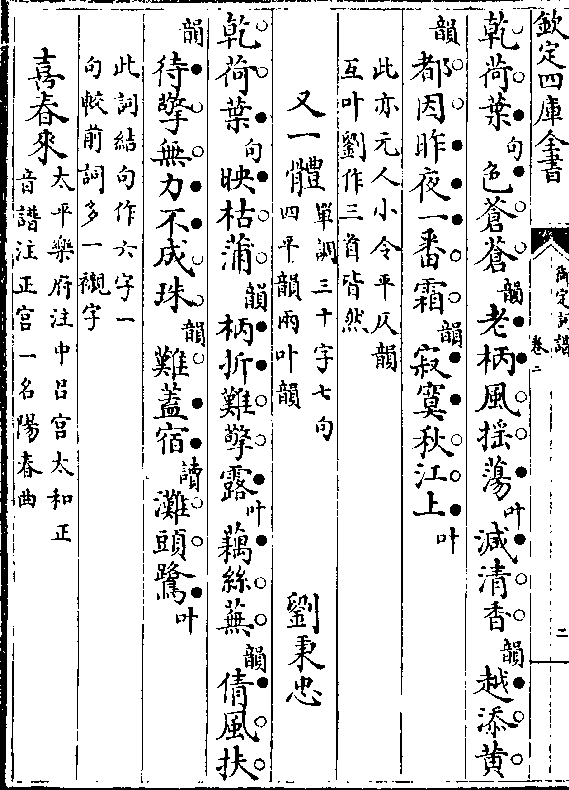 欽定四庫全書
御定詞譜
卷二
二
乾荷葉句色蒼蒼韻老柄風揺蕩叶減清香韻越添黄
韻都因昨夜一番霜韻寂寞秋江上叶
此亦元人小令平仄韻
互叶劉作三首皆然
又一體單調三十字七句
四平韻兩叶韻
劉秉忠
乾荷葉句映枯蒲韻柄折難擎露叶藕絲蕪韻倩風扶
韻待擎無力不成珠韻難蓋宿讀灘頭鷺叶
此詞結句作六字一
句較前詞多一襯字
喜春來太平樂府注中吕宫太和正
音譜注正宫一名陽春曲